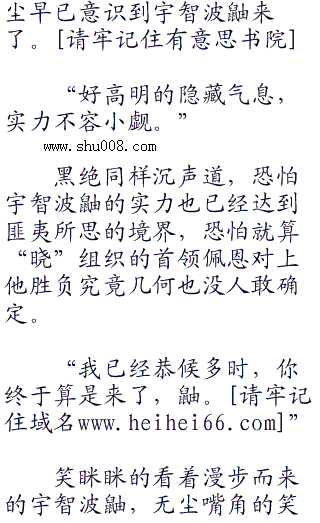 尘早已意识到宇智波鼬来
了。[请牢记住有意思书院]
“好高明的隐藏气息，
实力不容小觑。”
www.shu008.com
黑绝同样沉声道，恐怕
宇智波鼬的实力也已经达到
匪夷所思的境界，恐怕就算
“晓”组织的首领佩恩对上
他胜负究竟几何也没人敢确
定。
“我已经恭候多时，你
终于算是来了，鼬。[请牢记
住域名www.heihei66.com]”
笑眯眯的看着漫步而来
的宇智波鼬，无尘嘴角的笑